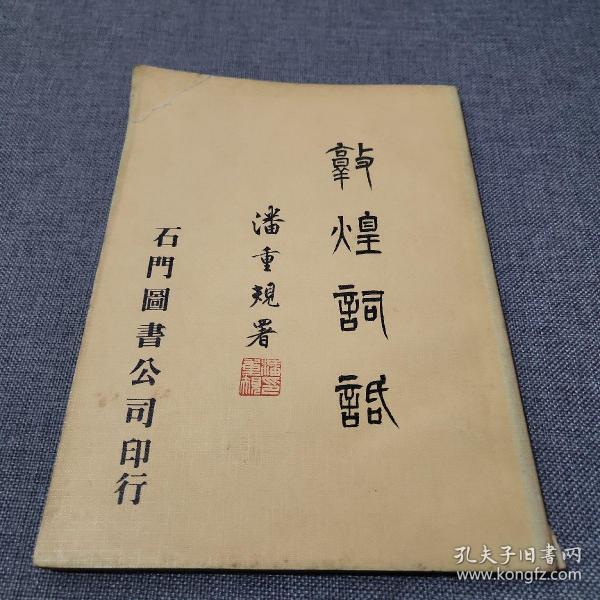 敦煌詞話
潘重規署
潘重規印
石門圖書公司印行
孔夫子旧书网
www.kongfz.com